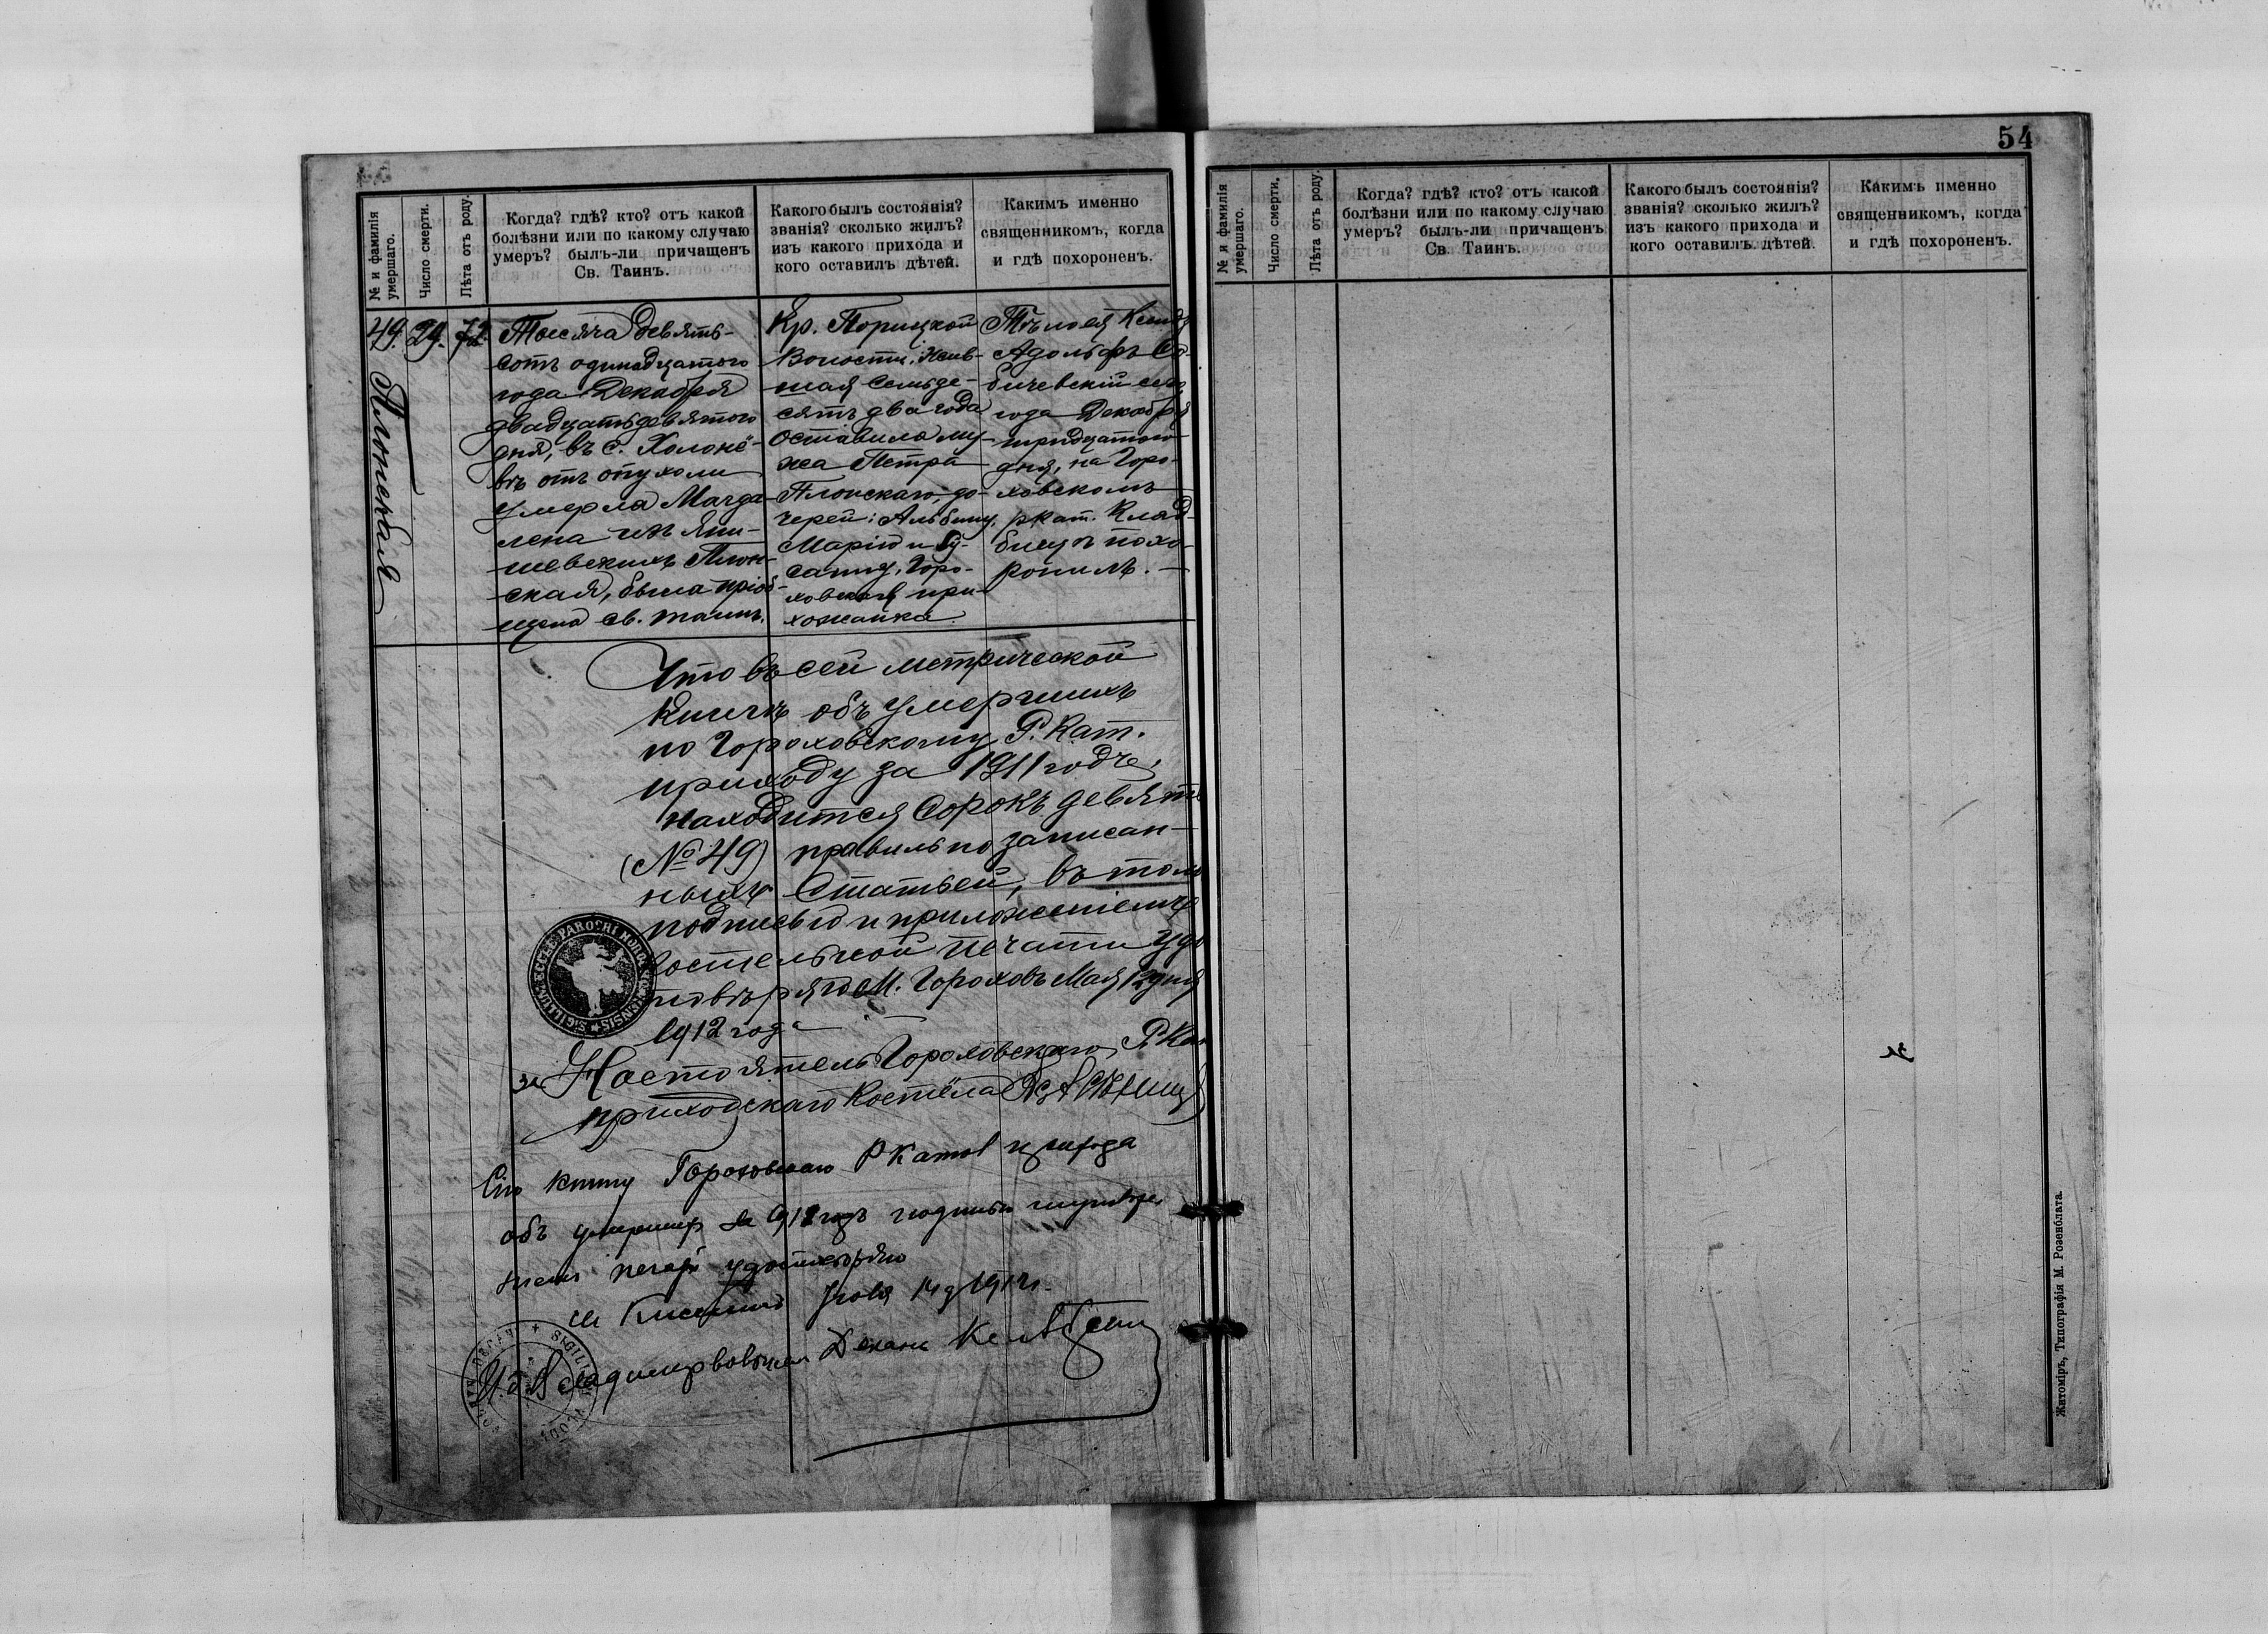 54
№ и фамилія умершаго.
Число смерти.
Лѣта отъ роду.
Когда? гдѣ? кто? отъ какой
болѣзни или по какому случаю
умеръ? былъ-ли причащенъ
Св. Таинъ.
Какого былъ состоянія?
званія? сколько жилъ?
изъ какого прихода и
кого оставилъ дѣтей.
Какимъ именно
священникомъ, когда
и гдѣ похороненъ.
49.
Плонская
29.
72.
Тысяча девять-
сотъ одинадцатого
года Декабря
двадцатьдевятого
дня, въ с. Холонѣ-
въ отъ опухоли
умерла Магда-
лена изъ Яни-
шевскихъ Плон-
ская, была пріоб-
щена св. таинъ.
Кр. Порицкой
Волости, жив-
шая семьде-
сятъ два года
оставила му-
жа Петра
Плонскаго, до-
черей: Альбину,
Марію и
Горо-
ховская при-
хожанка.
Тѣло ея Ксендз
Адольфъ
сего
года Декабря
тридцатого
дня, на Горо-
ховскомъ
ркат. Клад-
бищѣ похо-
ронилъ. —
Что въ сей метрической
книгѣ объ умершихъ
по Гороховскому Р. Кат.
приходу за 1911 годъ,
находится сорокъ девять
(№ 49) правильно записан-
ныхъ статьей, въ томъ
подписью и приложеніемъ
костельной печати удо
товѣряю М. Гороховъ Мая 12 дня
1912 года
Настоятель Гороховскаго Р. Кат
приходскаго Костёла
Сію книгу Гороховскаго Р Катол прихода
объ умершихъ за годъ подписью
печати удостовѣряю
м Киселинъ 14 д
И. д. Владимірволынск Деканъ
SIGILLUM ECCLAE PAROCHI HOROCHOVENSIS
SIGILLUM
№ и фамилія умершаго.
Число смерти.
Лѣта отъ роду.
Когда? гдѣ? кто? отъ какой
болѣзни или по какому случаю
умеръ? былъ-ли причащенъ
Св. Таинъ.
Какого былъ состоянія?
званія? сколько жилъ?
изъ какого прихода и
кого оставилъ дѣтей.
Какимъ именно
священникомъ, когда
и гдѣ похороненъ.
Житоміръ, Типографія М. Розенблата.